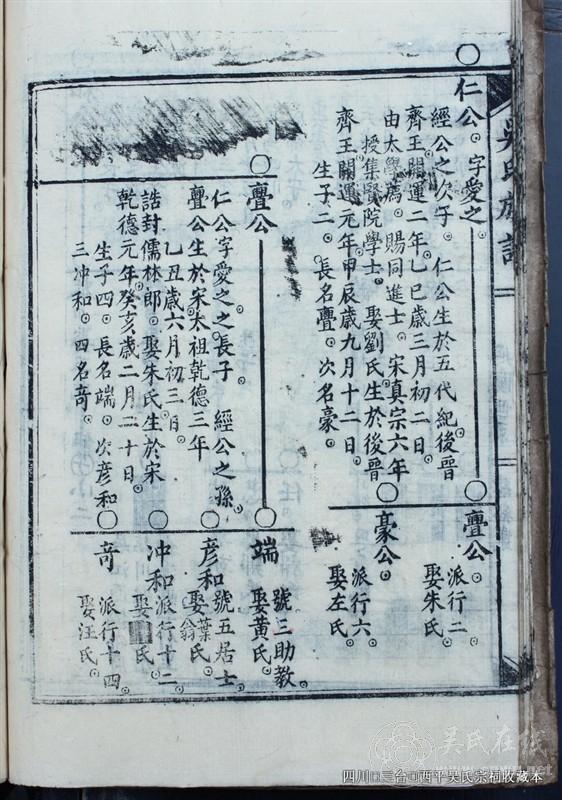 吳氏族譜
仁公。字愛之。
經公之次子。仁公生於五代紀後晉
齊王開運二年乙巳歲三月初二日。
由太學薦。賜同進士。宋真宗六年
授集賢院學士。娶劉氏生於後晉
齊王開運元年甲辰歲九月十二日。
生子二。長名亹。次名豪。
亹公。派行二。
娶朱氏。
豪公。派行六。
娶左氏。
亹公
仁公字愛之之長子 經公之孫。
亹公生於宋太祖乾德三年
乙丑歲六月初三日。
誥封儒林郎。娶朱氏生於宋
乾德元年癸亥歲二月二十日。
生子四。長名端。次彥和。
三冲和。四名竒。
端 號三助教。
娶黃氏。
彥和號五居士。
娶葉氏。
翁
冲和派行十二。
娶 氏。
竒 派行十四。
娶汪氏。
吴氏在线
四川□三台□西平吴氏宗祠收藏本